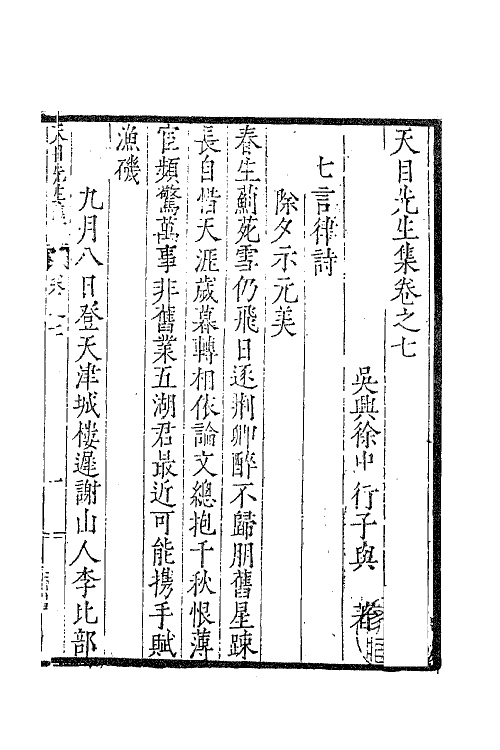 天目先生集卷之七
吳興徐中行子與 著
七言律詩
除夕示元美
春生薊苑雪仍飛日逐荆卿醉不歸朋舊星踈
長自惜天涯歲暮轉相依論文總抱千秋恨薄
宦頻驚萬事非舊業五湖君最近可能携手賦
漁磯
九月八日登天津城樓遲謝山人李比部
天目先生集 卷之七 一